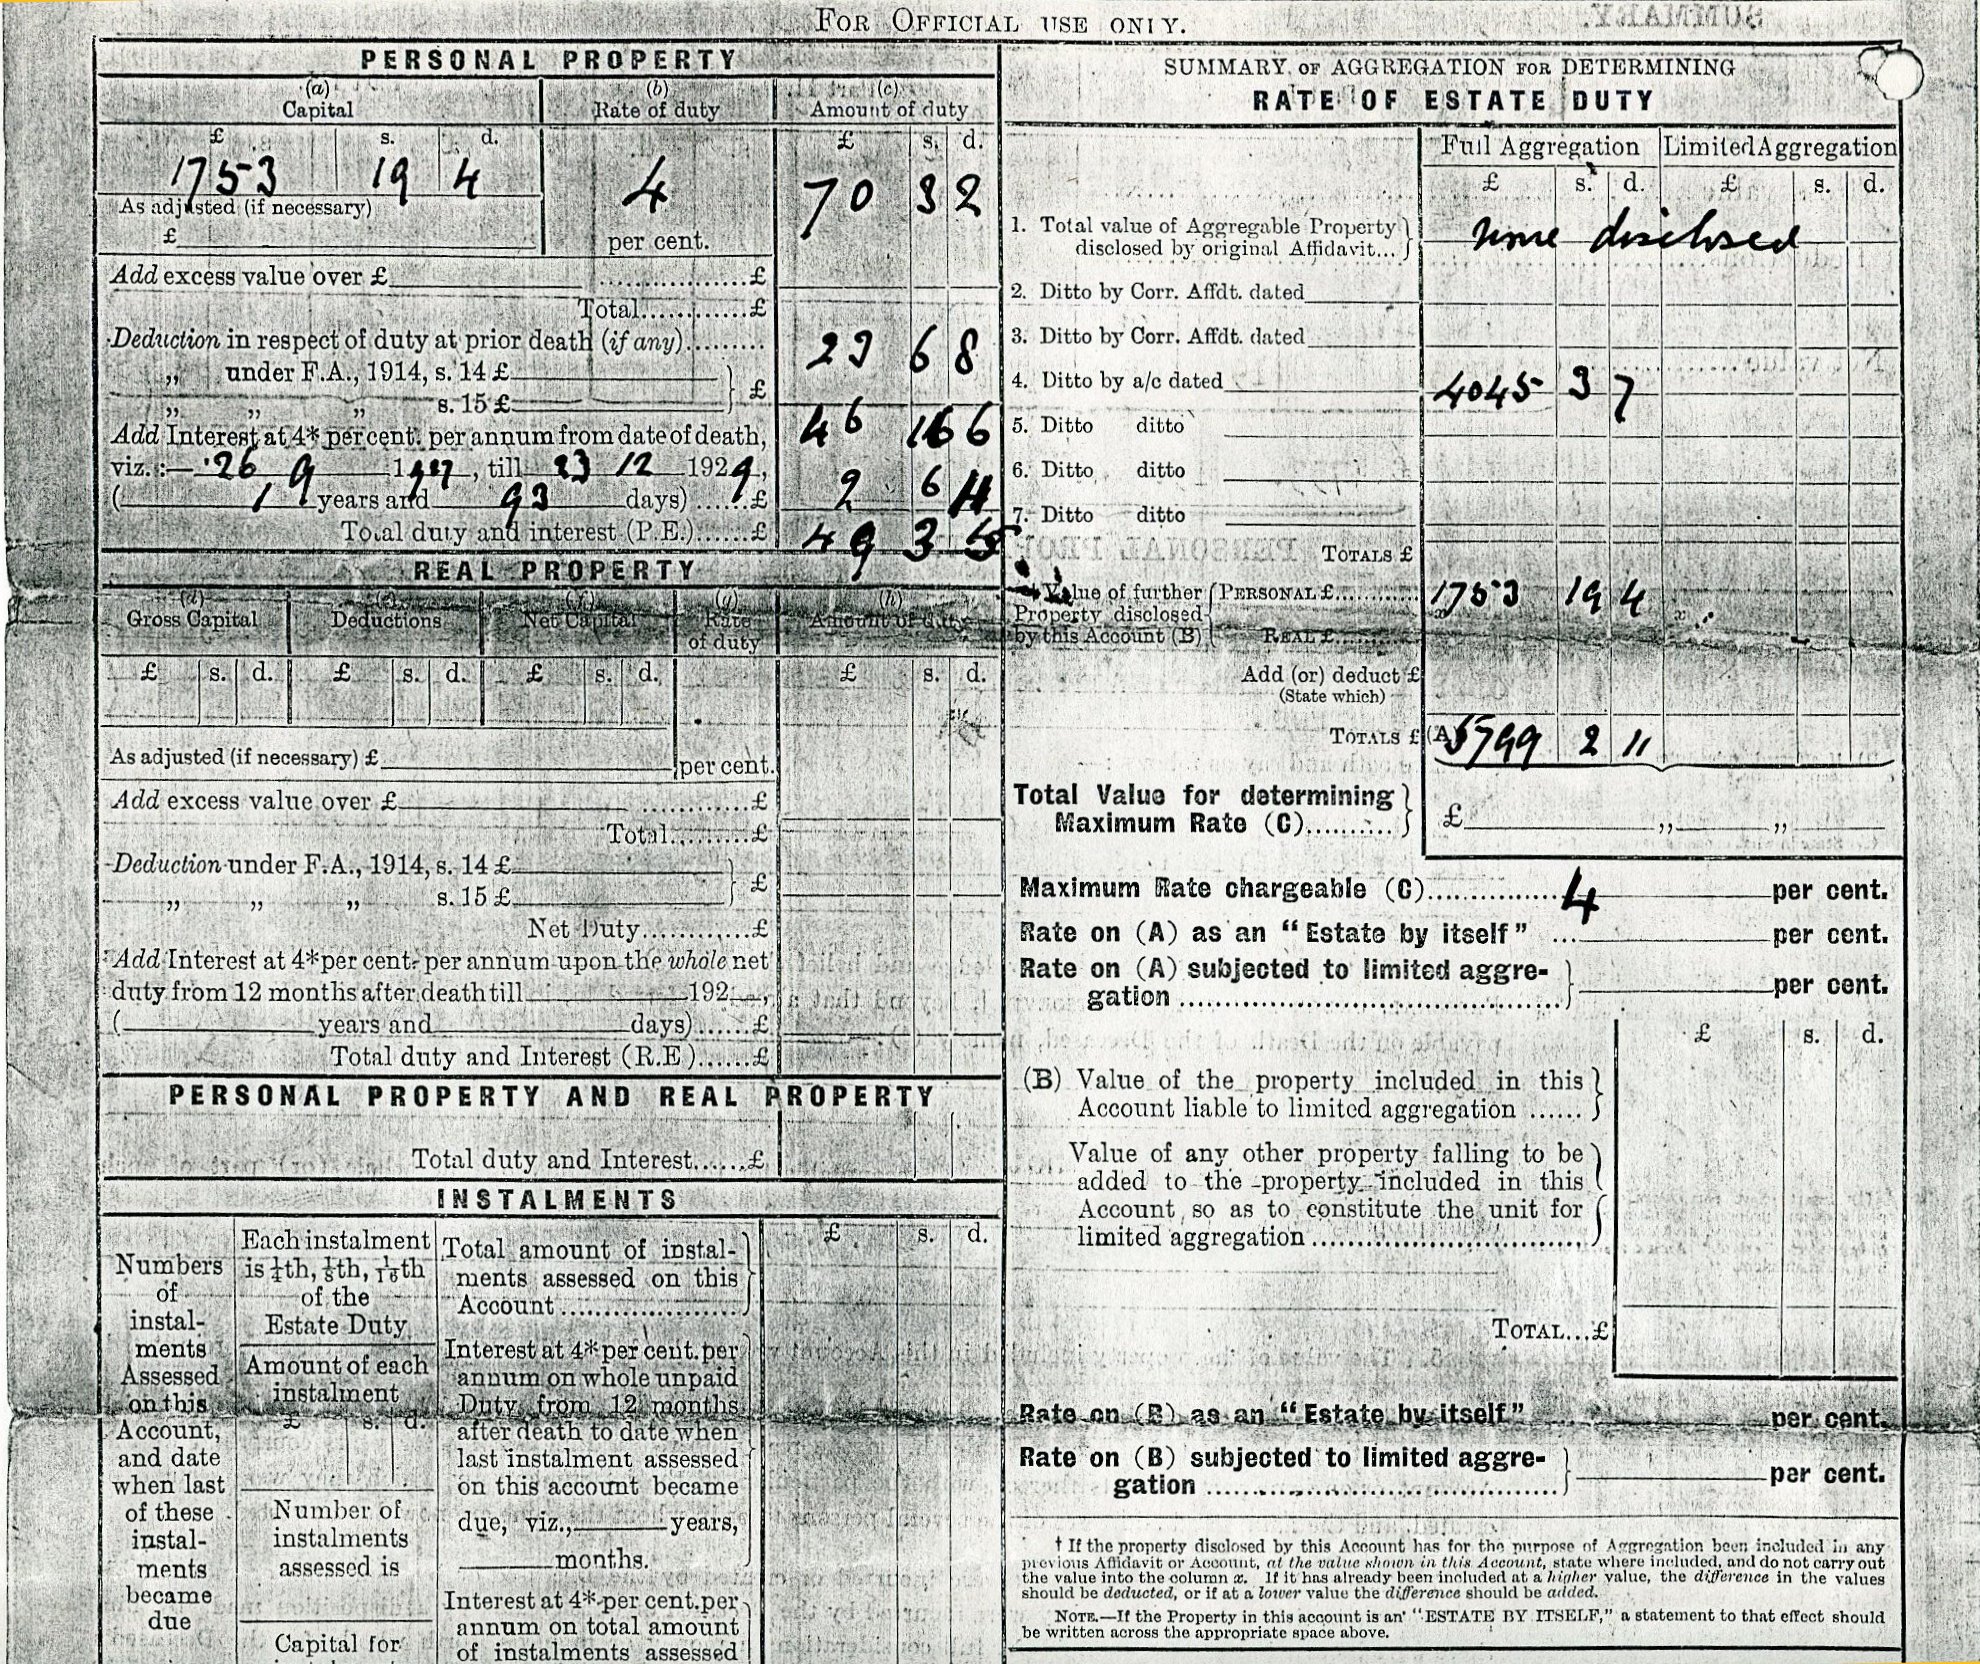 FOR OFFICIAL USE ONLY.
PERSONAL PROPERTY
(a) Capital
(b) Rate of duty
(c) Amount of duty
£ s. d.
£ s. d.
1753 19 4
4 per cent.
70 3 2
As adjusted (if necessary)
£
Add excess value over £ £
Total............£
Deduction in respect of duty at prior death (if any).........
23 6 8
„ under F.A., 1914, s. 14 £
„ „ „ s. 15 £ } £
46 16 6
Add Interest at 4* per cent. per annum from date of death,
viz.:— 26 9 1927, till 23 12 1929,
( years and 93 days) ......£
2 6 11
Total duty and interest (P.E.)......£
49 3 5
REAL PROPERTY
(d) Gross Capital
(e) Deductions
(f) Net Capital
(g) Rate of duty
(h) Amount of duty
£ s. d. £ s. d. £ s. d. £ s. d.
As adjusted (if necessary) £ per cent.
Add excess value over £ ............£
Total.........£
Deduction under F.A., 1914, s. 14 £
„ „ „ s. 15 £ } £
Net Duty............£
Add Interest at 4* per cent. per annum upon the whole net
duty from 12 months after death till 192 ,
( years and days)......£
Total duty and Interest (R.E.)......£
PERSONAL PROPERTY AND REAL PROPERTY
Total duty and Interest......£
INSTALMENTS
Numbers
of
instal-
ments
Assessed
on this
Account,
and date
when last
of these
instal-
ments
became
due
Each instalment
is ¼th, ⅛th, 1/16th
of the
Estate Duty
Amount of each
instalment
£ s. d.
Number of
instalments
assessed is
Capital for
Total amount of instal-
ments assessed on this
Account ......................
£ s. d.
Interest at 4* per cent. per
annum on whole unpaid
Duty from 12 months
after death to date when
last instalment assessed
on this account became
due, viz., years,
months.
Interest at 4* per cent. per
annum on total amount
of instalments assessed
SUMMARY OF AGGREGATION FOR DETERMINING
RATE OF ESTATE DUTY
Full Aggregation Limited Aggregation
£ s. d. £ s. d.
1. Total value of Aggregable Property
disclosed by original Affidavit... }
none disclosed
2. Ditto by Corr. Affdt. dated
3. Ditto by Corr. Affdt. dated
4. Ditto by a/c dated
4045 3 7
5. Ditto ditto
6. Ditto ditto
7. Ditto ditto
TOTALS £
Value of further
Property disclosed
by this Account (B)
{ PERSONAL £............
1753 19 4
x x
REAL £............
Add (or) deduct £
(State which)
TOTALS £ (A) 5799 2 11
Total Value for determining
Maximum Rate (C)..........} £ „ „
Maximum Rate chargeable (C)............. 4 per cent.
Rate on (A) as an “Estate by itself” ... per cent.
Rate on (A) subjected to limited aggre-
gation ........................................ } per cent.
£ s. d.
(B) Value of the property included in this
Account liable to limited aggregation ...... }
Value of any other property falling to be
added to the property included in this
Account so as to constitute the unit for
limited aggregation .............................. }
TOTAL...£
Rate on (B) as an “Estate by itself” per cent.
Rate on (B) subjected to limited aggre-
gation ..................................... } per cent.
† If the property disclosed by this Account has for the purpose of Aggregation been included in any
previous Affidavit or Account, at the value shown in this Account, state where included, and do not carry out
the value into the column x. If it has already been included at a higher value, the difference in the values
should be deducted, or if at a lower value the difference should be added.
NOTE.—If the Property in this account is an “ESTATE BY ITSELF,” a statement to that effect should
be written across the appropriate space above.